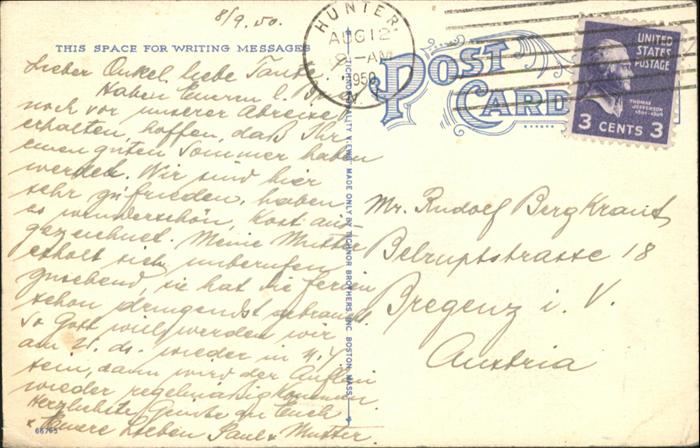 8/9.50.
THIS SPACE FOR WRITING MESSAGES
Lieber Onkel, liebe Tante
Haben Eueren l. Br.
noch vor unserer Abreise
erhalten, hoffen, daß Ihr
einen guten Sommer haben
werdet. Wir sind hier
sehr zufrieden, haben
es wunderschön, Kost aus-
gezeichnet. Meine Mutter
erholt sich unberufen
zusehend, sie hat die Ferien
schon dringendst gebraucht
So Gott will werden wir
am 21. ds. wieder in N.Y.
sein, dann wird der
wieder regelmäßig kommen
Herzlichste Grüße an Euch
& Euere Lieben Paul & Mutter
66795
TICHNOR QUALITY VIEWS MADE ONLY BY TICHNOR BROTHERS, INC. BOSTON, MASS.
HUNTER,
AUG 12
AM
1950
N.Y.
POST
CARD
UNITED
STATES
POSTAGE
THOMAS
JEFFERSON
1801-1809
3 CENTS 3
Mr. Rudolf Bergkraut
Belruptstrasse 18
Bregenz i. V.
Austria